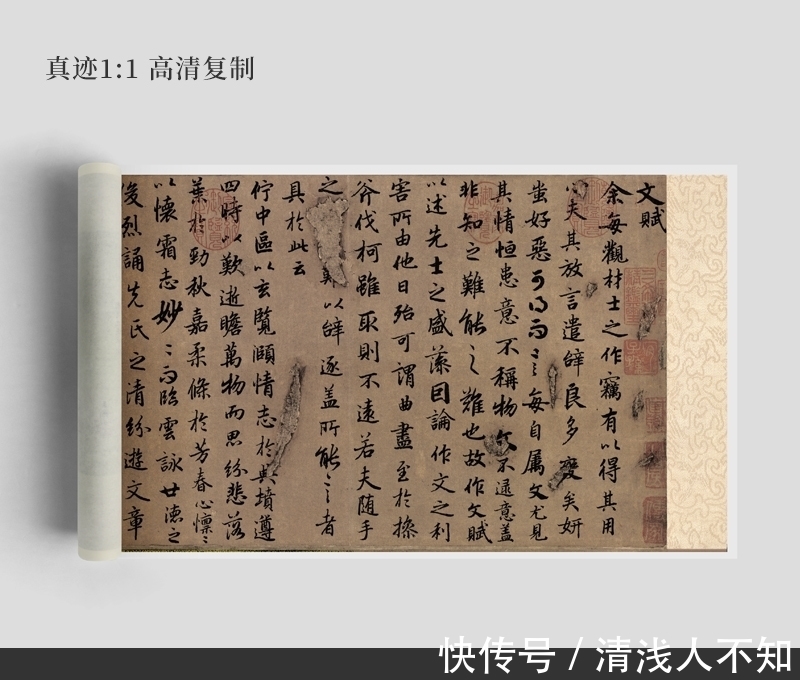 真迹1:1 高清复制
文賦
余每觀材士之作竊有以得其用
心夫其放言遣辤良多變矣妍
蚩好惡可得而言每自屬文尤見
其情恒患意不稱物文不逮意盖
非知之難能之難也故作文賦
以述先士之盛藻因論作文之利
害所由他日殆可謂曲盡至於操
斧伐柯雖取則不遠若夫隨手
之難以辤逐盖所能言者
具於此云
佇中區以玄覽頤情志於典墳遵
四時以歎逝瞻萬物而思紛悲落
葉於勁秋嘉柔條於芳春心懍〻
以懷霜志眇〻而臨雲詠世德之
俊烈誦先民之清芬遊文章
快传号 / 清浅人不知